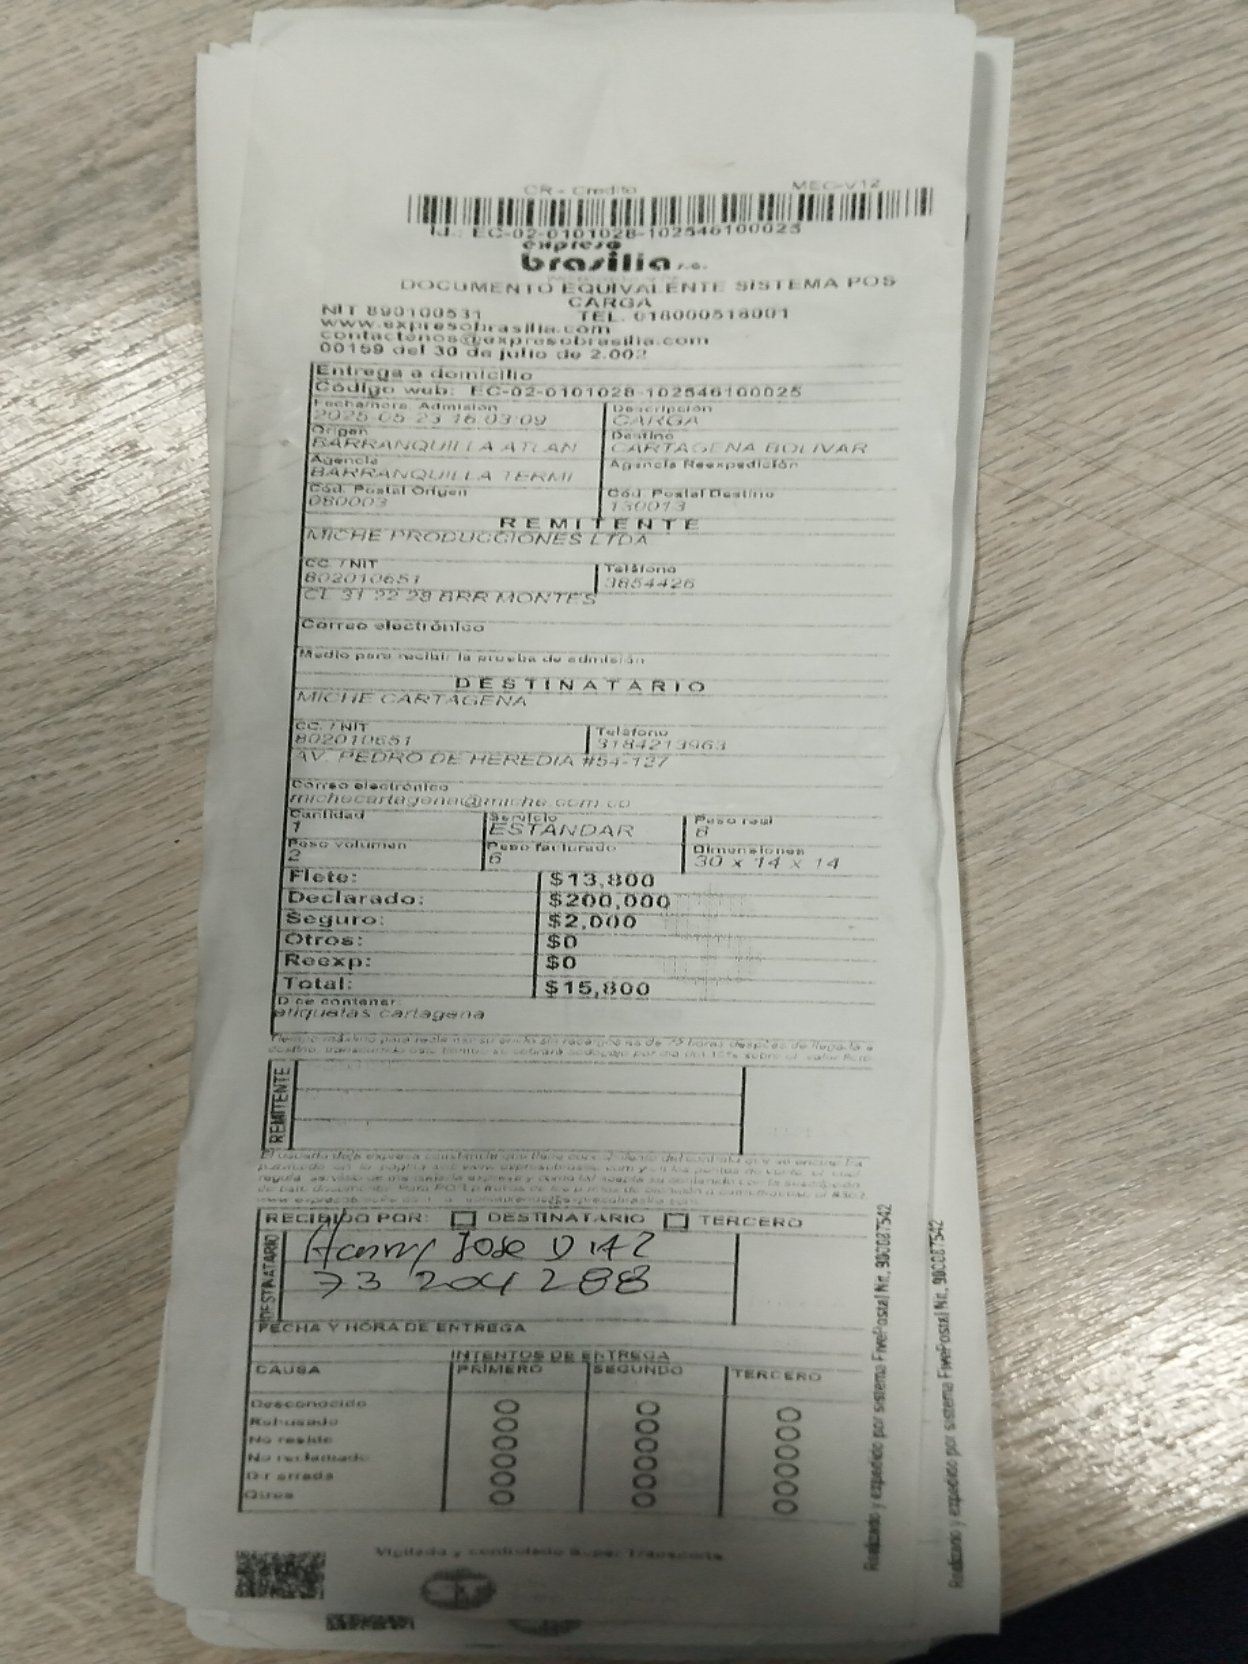 CR - Credito MEC-V12
Id.: EC-02-0101028-102546100025
expreso
brasilia s.a.
DOCUMENTO EQUIVALENTE SISTEMA POS
CARGA
NIT 890100531 TEL. 018000518001
www.expresobrasilia.com
contactenos@expresobrasilia.com
00159 del 30 de julio de 2.002
Entrega a domicilio
Código web: EC-02-0101028-102546100025
Fecha/hora Admisión Descripción
2025-05-23 16:03:09 CARGA
Origen Destino
BARRANQUILLA ATLAN CARTAGENA BOLIVAR
Agencia Agencia Reexpedición
BARRANQUILLA TERMI
Cód. Postal Origen Cód. Postal Destino
080003 130013
REMITENTE
MICHE PRODUCCIONES LTDA
CC. / NIT Teléfono
802010651 3854426
CL 31 22 28 BRR MONTES
Correo electrónico
Medio para recibir la prueba de admisión
DESTINATARIO
MICHE CARTAGENA
CC. / NIT Teléfono
802010651 3184213963
AV. PEDRO DE HEREDIA #54-127
Correo electrónico
michecartagena@miche.com.co
Cantidad Servicio Peso real
1 ESTANDAR 6
Peso volumen Peso facturado Dimensiones
2 6 30 x 14 x 14
Flete: $13,800
Declarado: $200,000
Seguro: $2,000
Otros: $0
Reexp: $0
Total: $15,800
Dice contener:
etiquetas cartagena
REMITENTE
RECIBIDO POR: DESTINATARIO TERCERO
DESTINATARIO
Jose DIAZ
73 204 288
FECHA Y HORA DE ENTREGA
INTENTOS DE ENTREGA
CAUSA PRIMERO SEGUNDO TERCERO
Desconocido
Rehusado
No reside
No reclamado
Dir errada
Otros
Vigilado y controlado Super Transporte
Realizado y expedido por sistema FivePostal Nit. 900087542
Realizado y expedido por sistema FivePostal Nit. 900087542